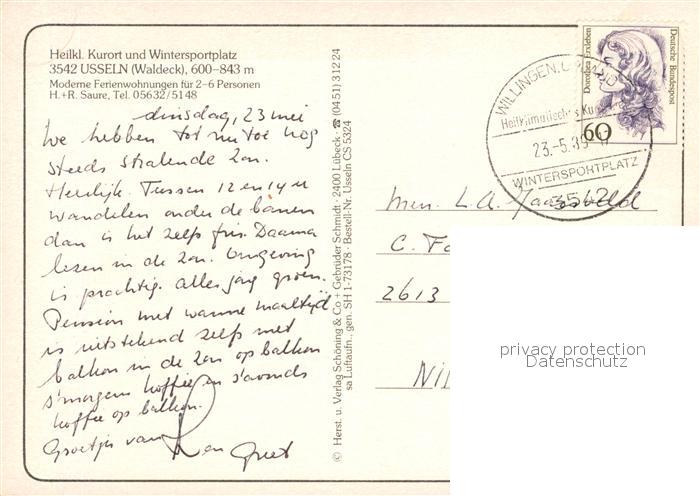 Heilkl. Kurort und Wintersportplatz
3542 USSELN (Waldeck), 600–843 m
Moderne Ferienwohnungen für 2–6 Personen
H.+R. Saure, Tel. 05632/5148
dinsdag, 23 mei
We hebben tot nu toe nog
steeds stralende zon.
Heerlijk. Tussen 12 en 14 u
wandelen onder de bomen
dan is het zelfs fris. Daarna
lezen in de zon. Omgeving
is prachtig. Alles jong groen.
Pension met warme maaltijd
is uitstekend zelfs met
balkon in de zon op balkon
s'morgens koffie en s'avonds
koffie op balkon.
Groetjes van
Greet
© Herst. u. Verlag Schöning & Co + Gebrüder Schmidt · 2400 Lübeck · ☎ (04 51) 3 12 24
sa Luftaufn., gen. SH 1-73178 · Bestell-Nr. Usseln CS 5324
Dorothea Erxleben
Deutsche Bundespost
60
WILLINGEN
Heilklimatischer
23.-5.89
WINTERSPORTPLATZ
3542
L.A.
C.
2613
privacy protection
Datenschutz